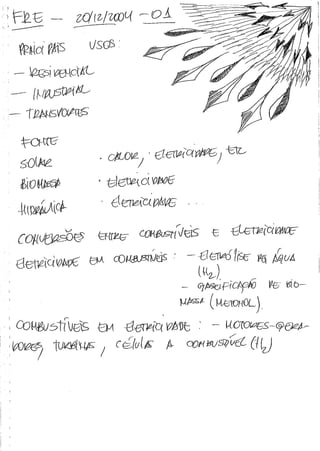 FRE — 20/12/2004 — 01
PRINCIPAIS USOS:
— RESIDENCIAL
— INDUSTRIAL
— TRANSPORTES
FONTE
SOLAR · CALOR, ELETRICIDADE, ETC
BIOMASSA · ELETRICIDADE
HIDRÁULICA · ELETRICIDADE . . .
CONVERSÕES ENTRE COMBUSTÍVEIS E ELETRICIDADE
ELETRICIDADE EM COMBUSTÍVEIS : — ELETRÓLISE DA ÁGUA
(H2)
— GASEIFICAÇÃO DE BIO-
MASSA (METONOL).
COMBUSTÍVEIS EM ELETRICIDADE : — MOTORES-GERA-
DORES, TURBINAS, CÉLULAS A COMBUSTÍVEL (H2)